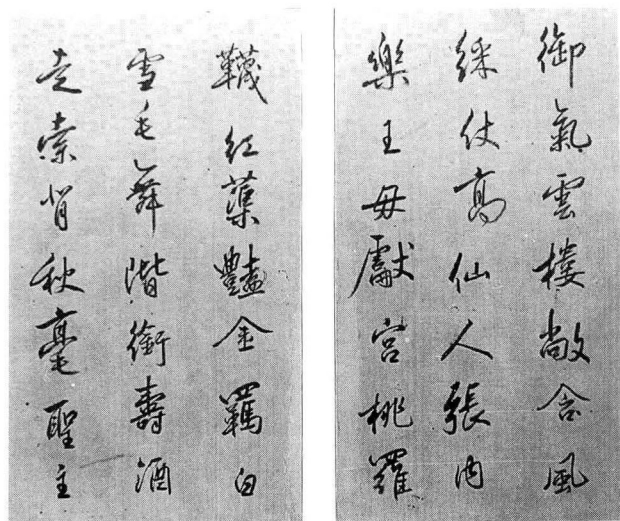 御氣雲樓敞含風
綵仗高仙人張内
樂王母獻宮桃羅
韈紅蕖豔金羈白
雪毛舞階銜壽酒
走索背秋毫聖主